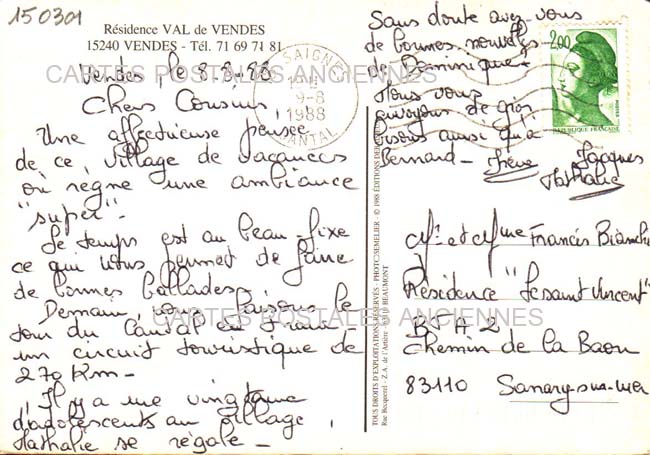 150301
Résidence VAL de VENDES
15240 VENDES - Tél. 71 69 71 81
Vendes, le 8-8-88
Chers Cousins,
Une affectueuse pensée
de ce village de vacances
où règne une ambiance
"super".
Le temps est au beau-fixe
ce qui nous permet de faire
de bonnes ballades.
Demain, nous faisons le
tour du Cantal en
un circuit touristique de
270 Km-
Il y a une vingtaine
d'adolescents au village,
Nathalie se régale-
Sans doute avez-vous
de bonnes nouvelles
de Dominique?
Nous vous
envoyons de gros
bisous ainsi qu'à
Bernard-
Jacques
Nathalie
SAIGNES
9-8
1988
CANTAL
2,00
REPUBLIQUE FRANÇAISE
TOUS DROITS D'EXPLOITATIONS RÉSERVÉS - PHOTOS SEMELIER - © 1988 ÉDITIONS
Rue Becquerel - Z.A. de l'Artière - 63110 BEAUMONT
Mr et Mme Francis Bianchi
Résidence "Le saint Vincent"
B A 2
Chemin de la Baou
83110 Sanary-sur-mer
CARTES POSTALES ANCIENNES
CARTES POSTALES ANCIENNES